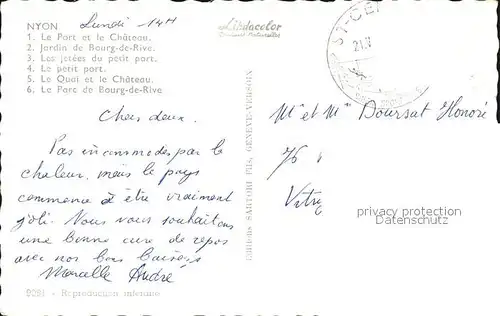 NYON Lundi - 14H
1. Le Port et le Château.
2. Jardin de Bourg-de-Rive.
3. Les jetées du petit port.
4. Le petit port.
5. Le Quai et le Château.
6. Le Parc de Bourg-de-Rive
Lindacolor
ST-CE
21.
Chers deux.
Pas incommodés par la
chaleur, mais le pays
commence à être vraiment
joli. Nous vous souhaitons
une bonne cure de repos
avec nos bons baisers
Marcelle André
2021 - Reproduction interdite
Editions SARTORI FILS, GENEVE-VERSOIX
Mr et Mme Doursat Honoré
76
Vitry
privacy protection
Datenschutz